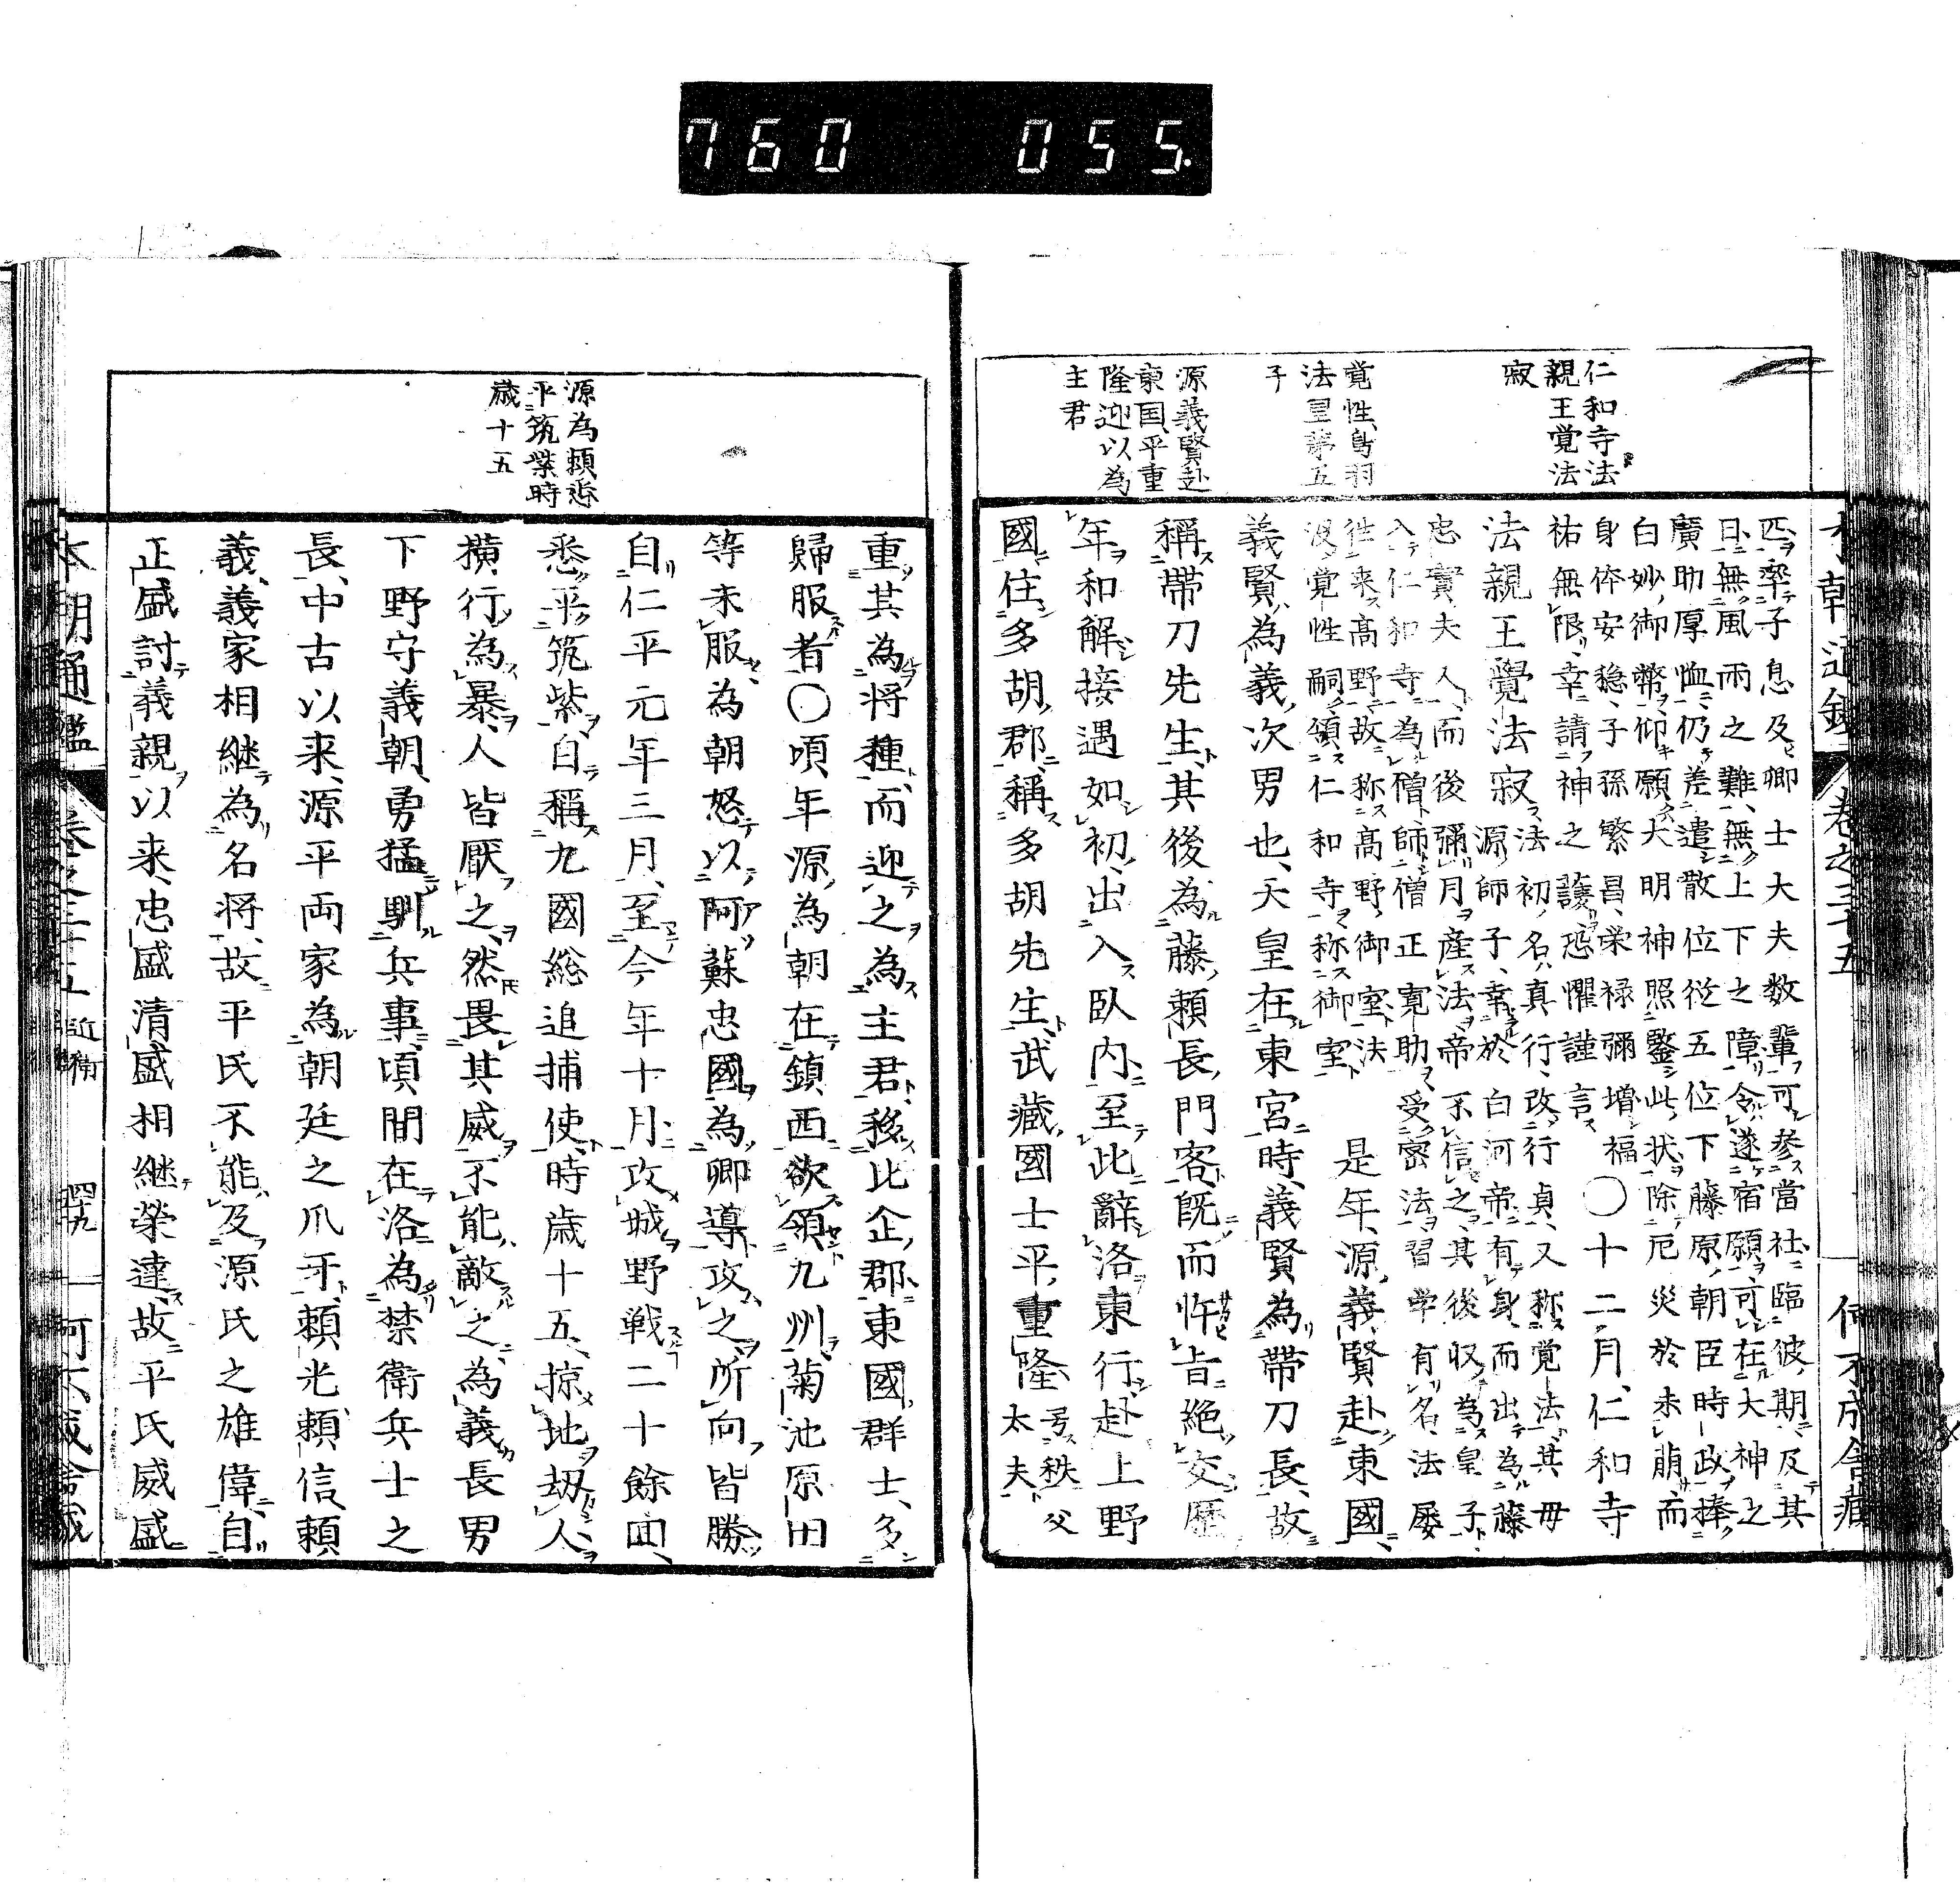 760 055.
仁和寺法
親王覚法
寂
覚性鳥羽
法皇第五
子
源義賢赴
東国平重
隆迎以為
主君
匹率子息及卿士大夫数輩可参當社臨彼期及其
日無風雨之難無上下之障令遂宿願可在大神之
廣助厚恤仍差遣散位従五位下藤原朝臣時政捧
白妙御幣仰願大明神照鑒此状除厄災於未萠而
身体安穏子孫繁昌栄禄彌増福〇十二月仁和寺
祐無限幸請神之護恐懼謹言
法親王覺法寂
法初名真行改行貞又称覚法其母
源師子幸於白河帝有身而出為藤
忠實夫人而後彌月産法帝不信之其後収為皇子
入仁和寺為僧師僧正寛助受密法習学有名法屡
往来高野故称高野御室法
没覚性嗣領仁和寺称御室
是年源義賢赴東國
義賢為義次男也天皇在東宮時義賢為帶刀長故
稱帶刀先生其後為藤頼長門客既而忤旨絶交歴
年和解接遇如初出入臥内至此辭洛東行赴上野
國住多胡郡稱多胡先生武藏國士平重隆
号秩父
太夫
本朝通鑑 巻之三十五
源為頼悉
平筑紫時
歳十五
重其為将種而迎之為主君移比企郡東國群士多
歸服者〇頃年源為朝在鎮西欲領九州菊池原田
等未服為朝怒以阿蘇忠國為卿導攻之所向皆勝
自仁平元年三月至今年十月攻城野戦二十餘回
悉平筑紫自稱九國総追捕使時歳十五掠地劫人
横行為暴人皆厭之然畏其威不能敵之為義長男
下野守義朝勇猛馴兵事頃間在洛為禁衛兵士之
長中古以来源平両家為朝廷之爪牙頼光頼信頼
義義家相継為名将故平氏不能及源氏之雄偉自
正盛討義親以来忠盛清盛相継榮達故平氏威盛
本朝通鑑 巻之三十五 近衛 四十九